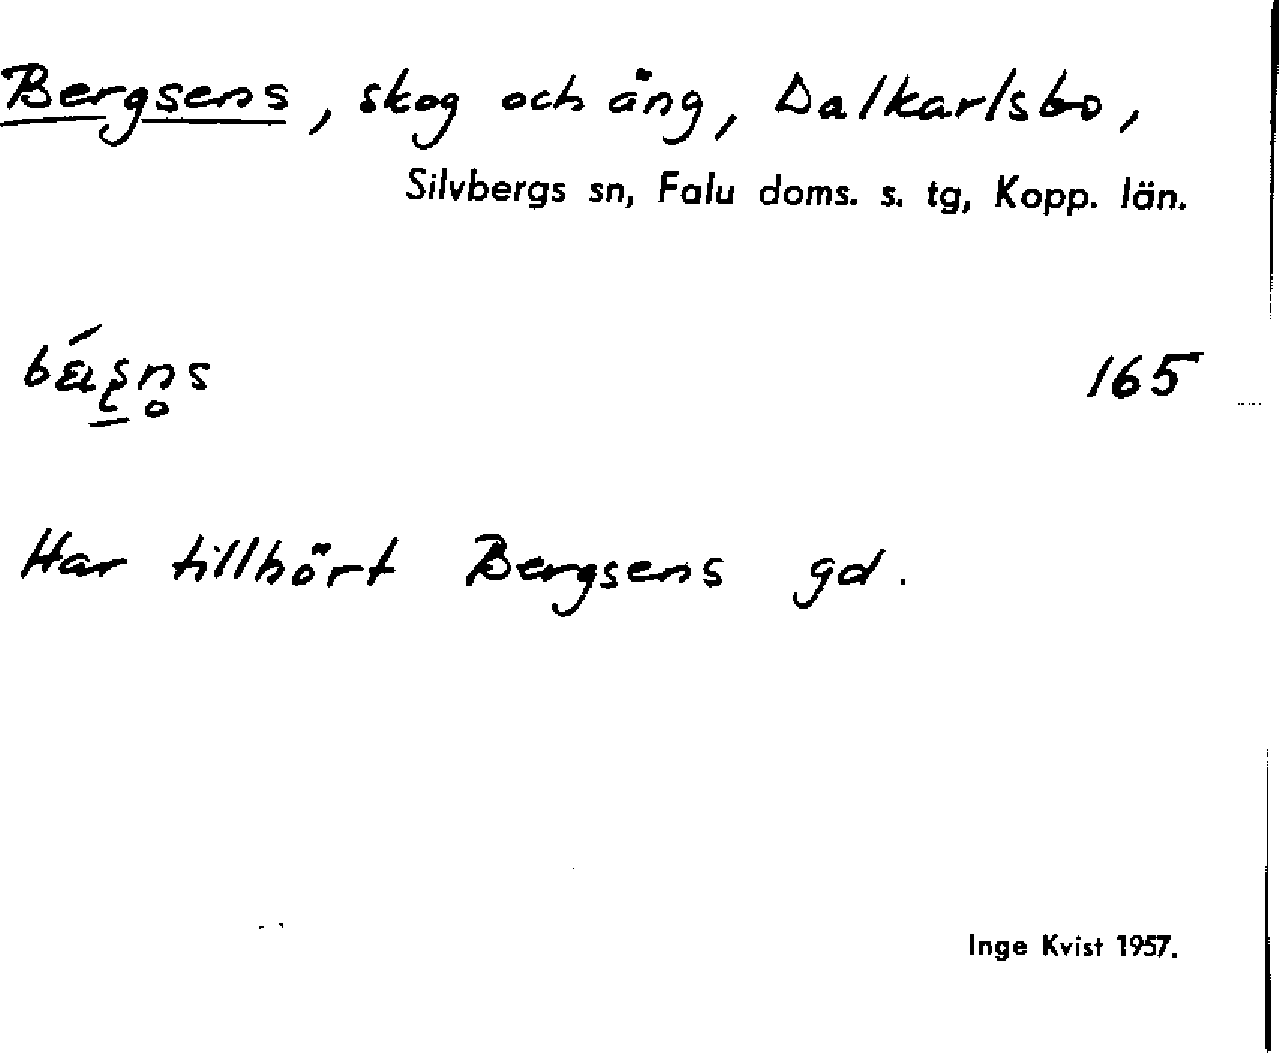 Bergsens, skog och äng, Dalkarlsbo,
Silvbergs sn, Falu doms. s. tg, Kopp. län.
165
Har tillhört Bergsens gd.
Inge Kvist 1957.